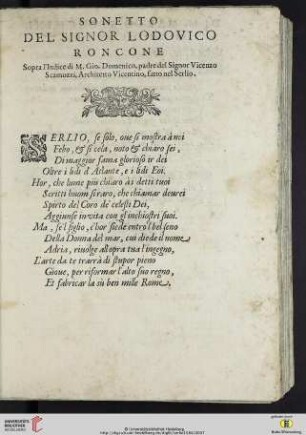 SONETTO
DEL SIGNOR LODOVICO
RONCONE
Sopra l'Indice di M. Gio. Domenico, padre del Signor Vicenzo
Scamozzi, Architetto Vicentino, fatto nel Serlio.
SERLIO, se sol o, oue si mostra à noi
Febo, & si cela, noto & chiaro sei,
Di maggior fama glorioso ir dei
Oltre i lidi d'Atlante, e i lidi Eoi.
Hor, che lume piu chiaro à i detti tuoi
Scritti huom sì raro, che chiamar deurei
Spirto del Coro de' celesti Dei,
Aggiunse in vita con gl'inchiostri suoi.
Ma, se'l figlio, c'hor siede entro l'bel seno
Della Donna del mar, cui diede il nome
Adria, riuolge all'opra tua l'ingegno,
L'arte da te trarrà di stupor pieno
Gioue, per riformar l'alto suo regno,
Et fabricar la sù ben mille Rome.
UNIVERSITÄTS-
BIBLIOTHEK
HEIDELBERG
© Universitätsbibliothek Heidelberg